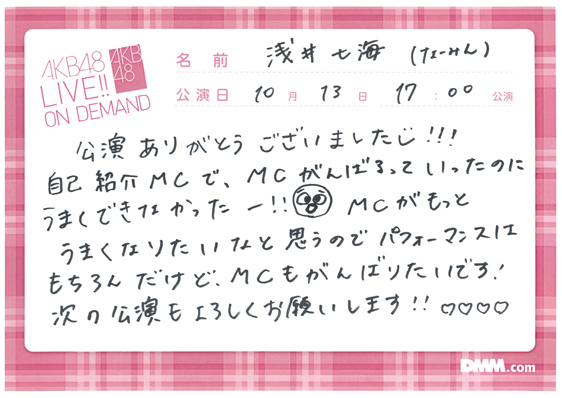 AKB48
LIVE!!
ON DEMAND
AKB
48
名前 浅井七海 (なーみん)
公演日 10月 13日 17:00 公演
公演ありがとうございましたじ!!!
自己紹介MCで、MCがんばるっていったのに
うまくできなかったー!! MCがもっと
うまくなりたいなと思うのでパフォーマンスは
もちろんだけど、MCもがんばりたいです!
次の公演もよろしくお願いします!! ♡♡♡♡
DMM.com